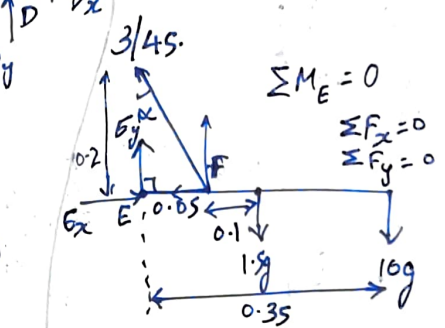 D
x
y
3/45.
ΣM_E = 0
ΣF_x = 0
ΣF_y = 0
α
E_y
0.2
F
E_x
E
0.05
0.1
1.5g
10g
0.35